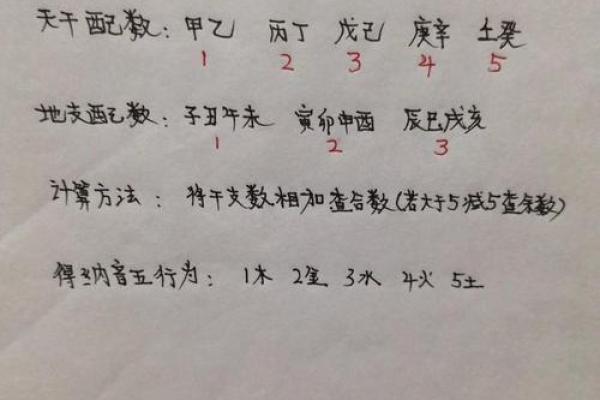 天干配数：甲乙 丙丁 戊己 庚辛 壬癸
1 2 3 4 5
地支配数：子丑午未 寅卯申酉 辰巳戌亥
1 2 3
计算方法：将干支数相加查合数(若大于5减5查余数)
得之纳音五行为：1木 2金 3水 4火 5土